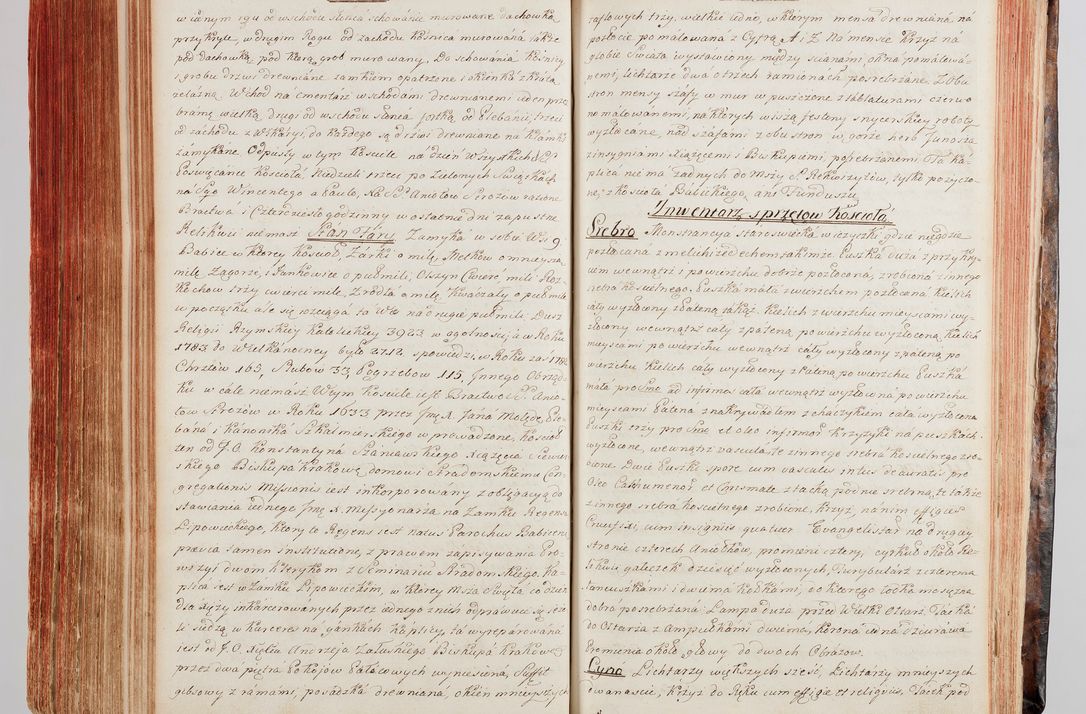 w iednym rogu od wschodu słońca schowanie murowane dachowką
przykryte, w drugim Rogu od zachodu kośnica murowana także
pod dachowką pod ktorą grob murowany, Do schowania kośnicy
i grobu drzwi drewniane zamkiem opatrzone i okienka z kratą
żelazną. Wchod na cmentarz wschodami drewnianemi ieden przez
bramę wielką, drugi od wschodu słońca fortką od Plebanii, trzeci
od zachodu z Wikaryi, do każdego są drzwi drewniane na klamki
zamykane. Odpusty w tym kościele na dzień Wszystkich SS.
Poswięcanie kościoła Niedzieli trzeci po Zielonych Swiątkach
na Sgo Wincentego a Paulo, Na SS. Aniołow Strożow razem
Bractwa i Czterdziesto godzinny w ostatnie dni zapustne
Relikwii niemasz Stan Fary Zamyka w sobie Wsi 9
Babice w ktorey kościoł, Żarki o milę, Mętkow o mnieyszą
milę Zagorze, i Jankowice o pułmili, Olszyn ćwierć mili Roz-
kochow trzy ćwierci mile, Zrodła o milę, Kwaczały o puł mile
w początku ale się rozciąga ta Wś na drugie pułmile, Dusz
Religii Rzymskiey Katolickiey 3923 w ogolności, a w Roku
1783 do Wielkanocney było 2712 spowiedzi, w Roku zaś 1782
Chrztow 165, Slubow 33, Pogrzebow 115, Innego Obrząd-
ku w cale niemasz W tym kościele iest Bractwo SS. Anio-
łow Strożow w Roku 1633 przez Jmę X. Jana Molędę Ple-
bana i Kanonika Szkalmierskiego w prowadzone, kościoł
ten od J.O. Konstantyna Szaniawskiego Xiążęcia Siewier-
skiego Biskupa krakow: domowi Stradomskiemu Con-
gregationis Missionis iest inkorporowany z obligacyą do-
stawiania iednego Jmę X. Missyonarza na Zamku Regensa
Lipowieckiego, ktory to Regens iest natus Parochus Babicen:
prævia tamen institutione, z prawem zapisywania Pro-
wizyi dwom klerykom z Seminarii Stradomskiego. Ka-
plica iest w Zamku Lipowieckim, w ktorey Msza Swięta co dzień
dla Xięży inkarcerowanych przez iednego z nich odprawuie się ieże-
li siedzą w karceres na gankach kaplicy, ta wyreparowana
iest od J.O. Xięcia Andrzeja Załuskiego Biskupa krakow:
przez dwa piętra Pokojow Pałacowych wyniesiona, Suffit
gibsowy z ramami, posadzka drewniana, okien mnieyszych
taflowych trzy, wielkie iedno, w ktorym mensa drewniana na
pozłocie pomalowana z Cyfrą A i Z Na mensie Krzyż na
globie Swiata wystawiony między scianami, okna pomalowa-
nemi, Lichtarze dwa o trzech ramionach posrebrzane, Z obu
stron mensy szafy w mur w puszczone z tablaturami czerwo-
no malowanemi, na ktorych wiszą festony snycerskiey roboty
wyzłacane, nad szafami z obu stron w gorze herb Junosza
z insygniami Xiążęcemi i Biskupiemi, posrebrzanemi Ta Ka-
plica nie ma żadnych do Mszy S. Rekwizytow, tylko pożyczo-
ne, z kościoła Babickiego, ani Funduszu
Inwentarz sprzętow Kościoła
Srebro Monstrancya staroswiecka w wieżyczki, gdzie niegdzie
pozłacana z melchizedechem takimże, Puszka duża z przykry-
ciem wewnątrz i po wierzchu dobrze pozłacana, zrobiona z innego
srebra kościelnego. Puszka mała z wierzchem pozłacana, Kielich
cały wyzłocony z pateną takąż Kielich z wierzchu mieyscami wy-
złocony wewnątrz cały z pateną po wierzchu wyzłoconą, Kielich
mieyscami po wierzchu wewnątrz cały wyzłocony z pateną po
wierzchu Kielich cały wyzłocony z Pateną po wierzchu Puszka
mała pro Smo ad infirmos cała wewnątrz wyzłacana po wierzchu
mieyscami Patena z nakrywadłem z haczykiem cała wyzłocona
Puszki trzy pro Smo et oleo infirmor krzyżyki na puszkach
wyzłocone, wewnątrz vascula, te z innego srebra kościelnego zro-
bione. Dwie Puszki spore cum vasculis intus deauratis pro
Oleo Cathumenor et Chrismate z tacką pod nie srebrną, te także
z innego srebra kościelnego zrobione, Krzyż, na nim effigies
Crucifixi, cum insigniis quatuor Evangelistar na drugiey
stronie czterech Aniołkow, promieni cztery, cyrkuł około Krzy-
żykow gałeczek dziesięć wyzłoconych, Turybularz z czterema
łancuszkami i dwiema kołkami, do ktorego łodka mosiężna
dobrze posrebrzana Lampa duża przed Wielki Ołtarz, Tacka
do Ołtarza z Ampułkami dwiema, Korona iedna dziurawa
Promienia około głowy do swoch Obrazow.
Cyna Lichtarzy większych sześć, Lichtarzy mnieyszych
dwanaście, Krzyż do Ręku cum effigie et reliquiis, Tacek pod